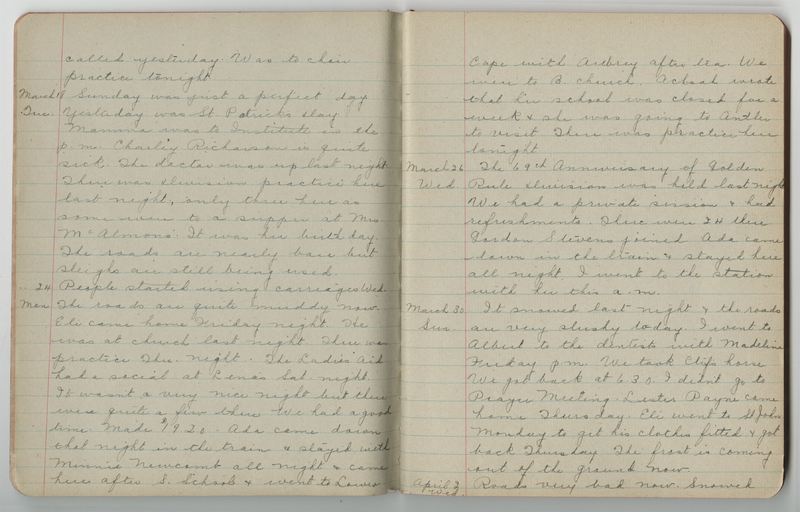 called yesterday. Was to choir
practice tonight.
March 18 Sunday was just a perfect day
Tue. Yesterday was St. Patricks day.
Mamma was to Institute in the
p.m. Charley Richarson is quite
sick. The doctor was up last night
There was division practice here
last night, only three here as
some were to a supper at Mrs
McAlmons. It was her birthday.
The roads are nearly bare but
sleighs are still being used.
" 24 People started using carriages Wed.
Mon The roads are quite muddy now.
Eli came home Friday night. He
was at church last night. There was
practice Thu. night. The Ladies' Aid
had a social at Lena's Sat night.
It wasn't a very nice night but there
were quite a few there. We had a good
time. Made $19.20. Ada came down
that night in the train & stayed with
Minnie Newcomb all night & came
here after S. School & went to Lower
Cape with Aubrey after tea. We
were to B. church. Achsah wrote
that her school was closed for a
week & she was going to
to visit. There was practice here
tonight
March 26 The 69th Anniversary of Golden
Wed. Rule division was held last night
We had a private session & had
refreshments. There were 24 there
Gordon Stevens joined. Ada came
down in the train & stayed here
all night. I went to the station
with her this a.m.
March 30 It snowed last night & the roads
Sun are very slushy today. I went to
Albert to the dentists with Madeline
Friday p.m. We took Clifs horse
We got back at 6.30. I didnt go to
Prayer Meeting. Lester Payne came
home Thursday. Eli went to St John
Monday to get his clothes fitted & got
back Thursday. The frost is coming
out of the ground now.
April 2 Roads very bad now. Snowed
Wed